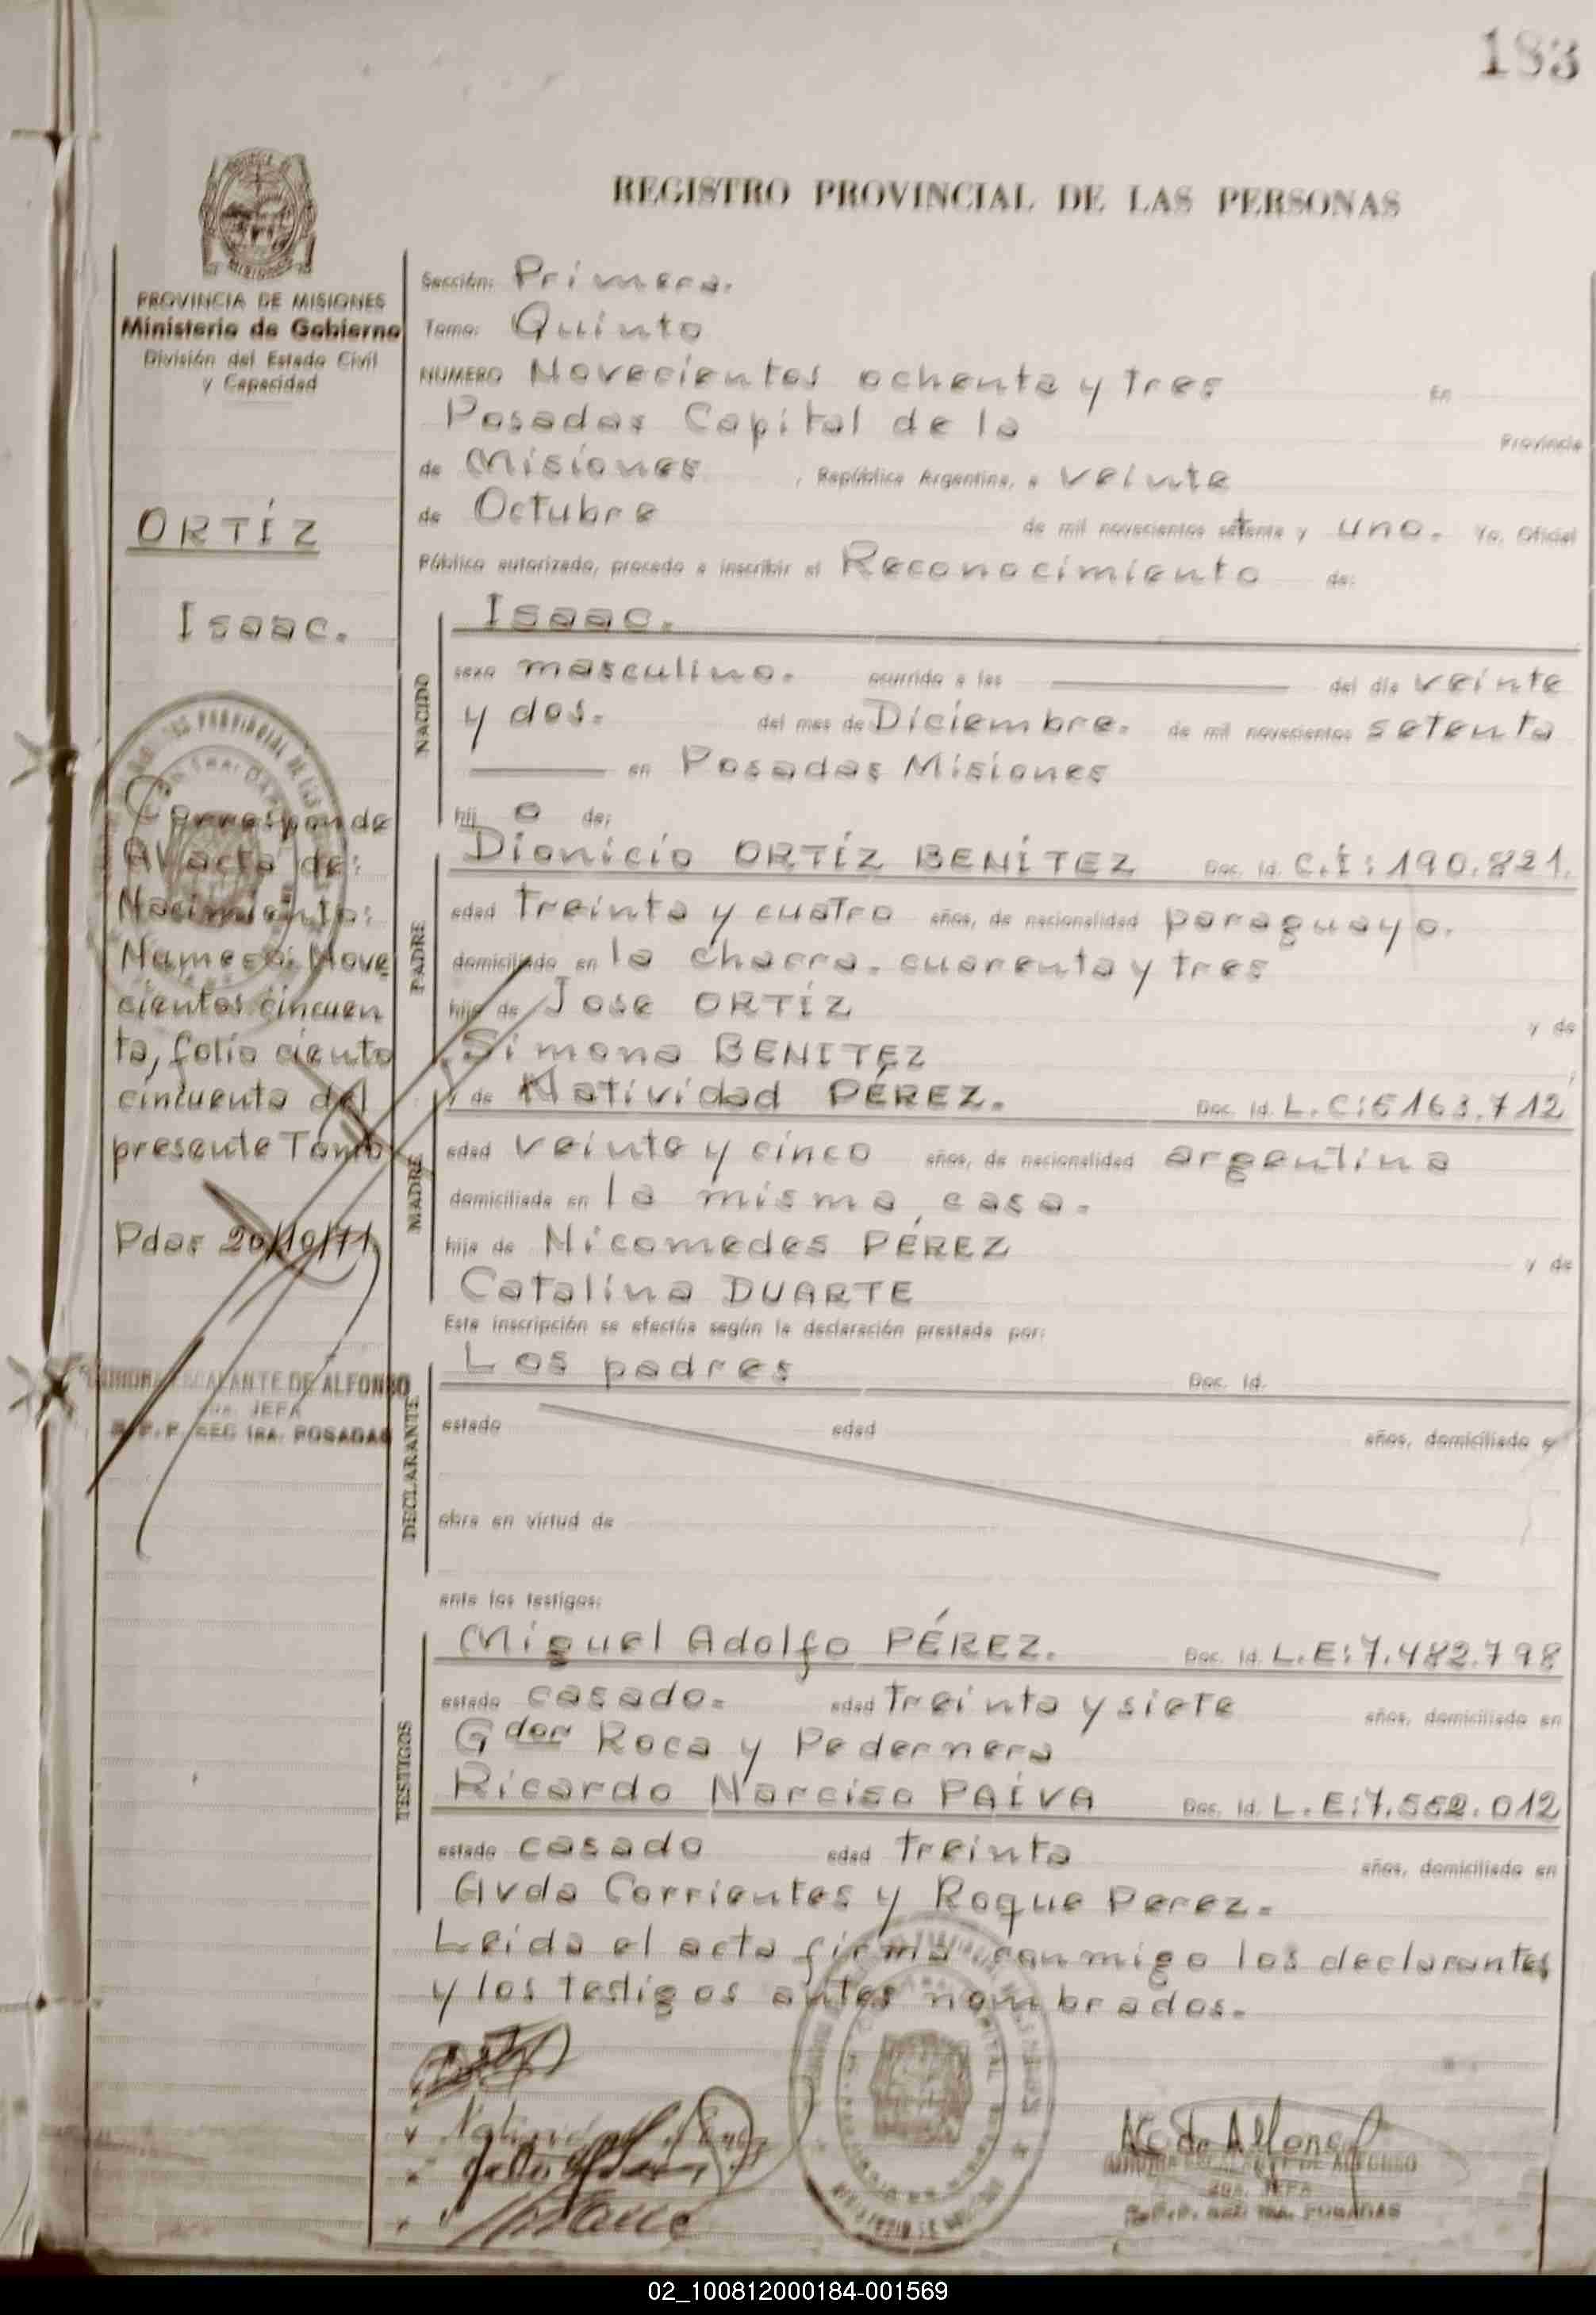 183
REGISTRO PROVINCIAL DE LAS PERSONAS
PROVINCIA DE MISIONES
Ministerio de Gobierno
División del Estado Civil
y Capacidad
ORTÍZ
Isaac.
Corresponde
Al acta de:
Nacimiento:
Numero: Nove
cientos cincuen
ta, folio ciento
cincuenta del
presente Tomo
Pdas 20/10/71
ESCALANTE DE ALFONSO
JEFA
SEC 1RA. POSADAS
Sección: Primera.
Tomo: Quinto
NUMERO Novecientos ochenta y tres En
Posadas Capital de la Provincia
de Misiones , República Argentina, a veinte
de Octubre de mil novecientos setenta y uno. Yo, Oficial
Público autorizado, procedo a inscribir el Reconocimiento de:
NACIDO
Isaac.
sexo masculino. ocurrido a las del día veinte
y dos. del mes de Diciembre. de mil novecientos setenta
en Posadas Misiones
hij o de:
PADRE
Dionicio ORTÍZ BENÍTEZ Doc. Id. C.I: 190.821.
edad treinta y cuatro años, de nacionalidad paraguayo.
domiciliado en la chacra. cuarenta y tres
hijo de Jose ORTÍZ y de
Simona BENITEZ
MADRE
y de Natividad PÉREZ. Doc. Id. L.C:5163.712
edad veinte y cinco años, de nacionalidad argentina
domiciliada en la misma casa.
hija de Nicomedes PÉREZ y de
Catalina DUARTE
Esta inscripción se efectúa según la declaración prestada por:
DECLARANTE
Los padres Doc. Id.
estado edad años, domiciliado y
obra en virtud de
ante los testigos:
TESTIGOS
Miguel Adolfo PÉREZ. Doc. Id. L.E:7.482.798
estado casado. edad treinta y siete años, domiciliado en
Gdor Roca y Pedernera
Ricardo Narciso PAÍVA Doc. Id. L.E:7.552.012
estado casado edad treinta años, domiciliado en
Avda Corrientes y Roque Perez.
Leida el acta firma conmigo los declarantes
y los testigos antes nombrados.
de Alfonso
ESCALANTE DE ALFONSO
JEFA
SEC 1RA. POSADAS
02_100812000184-001569